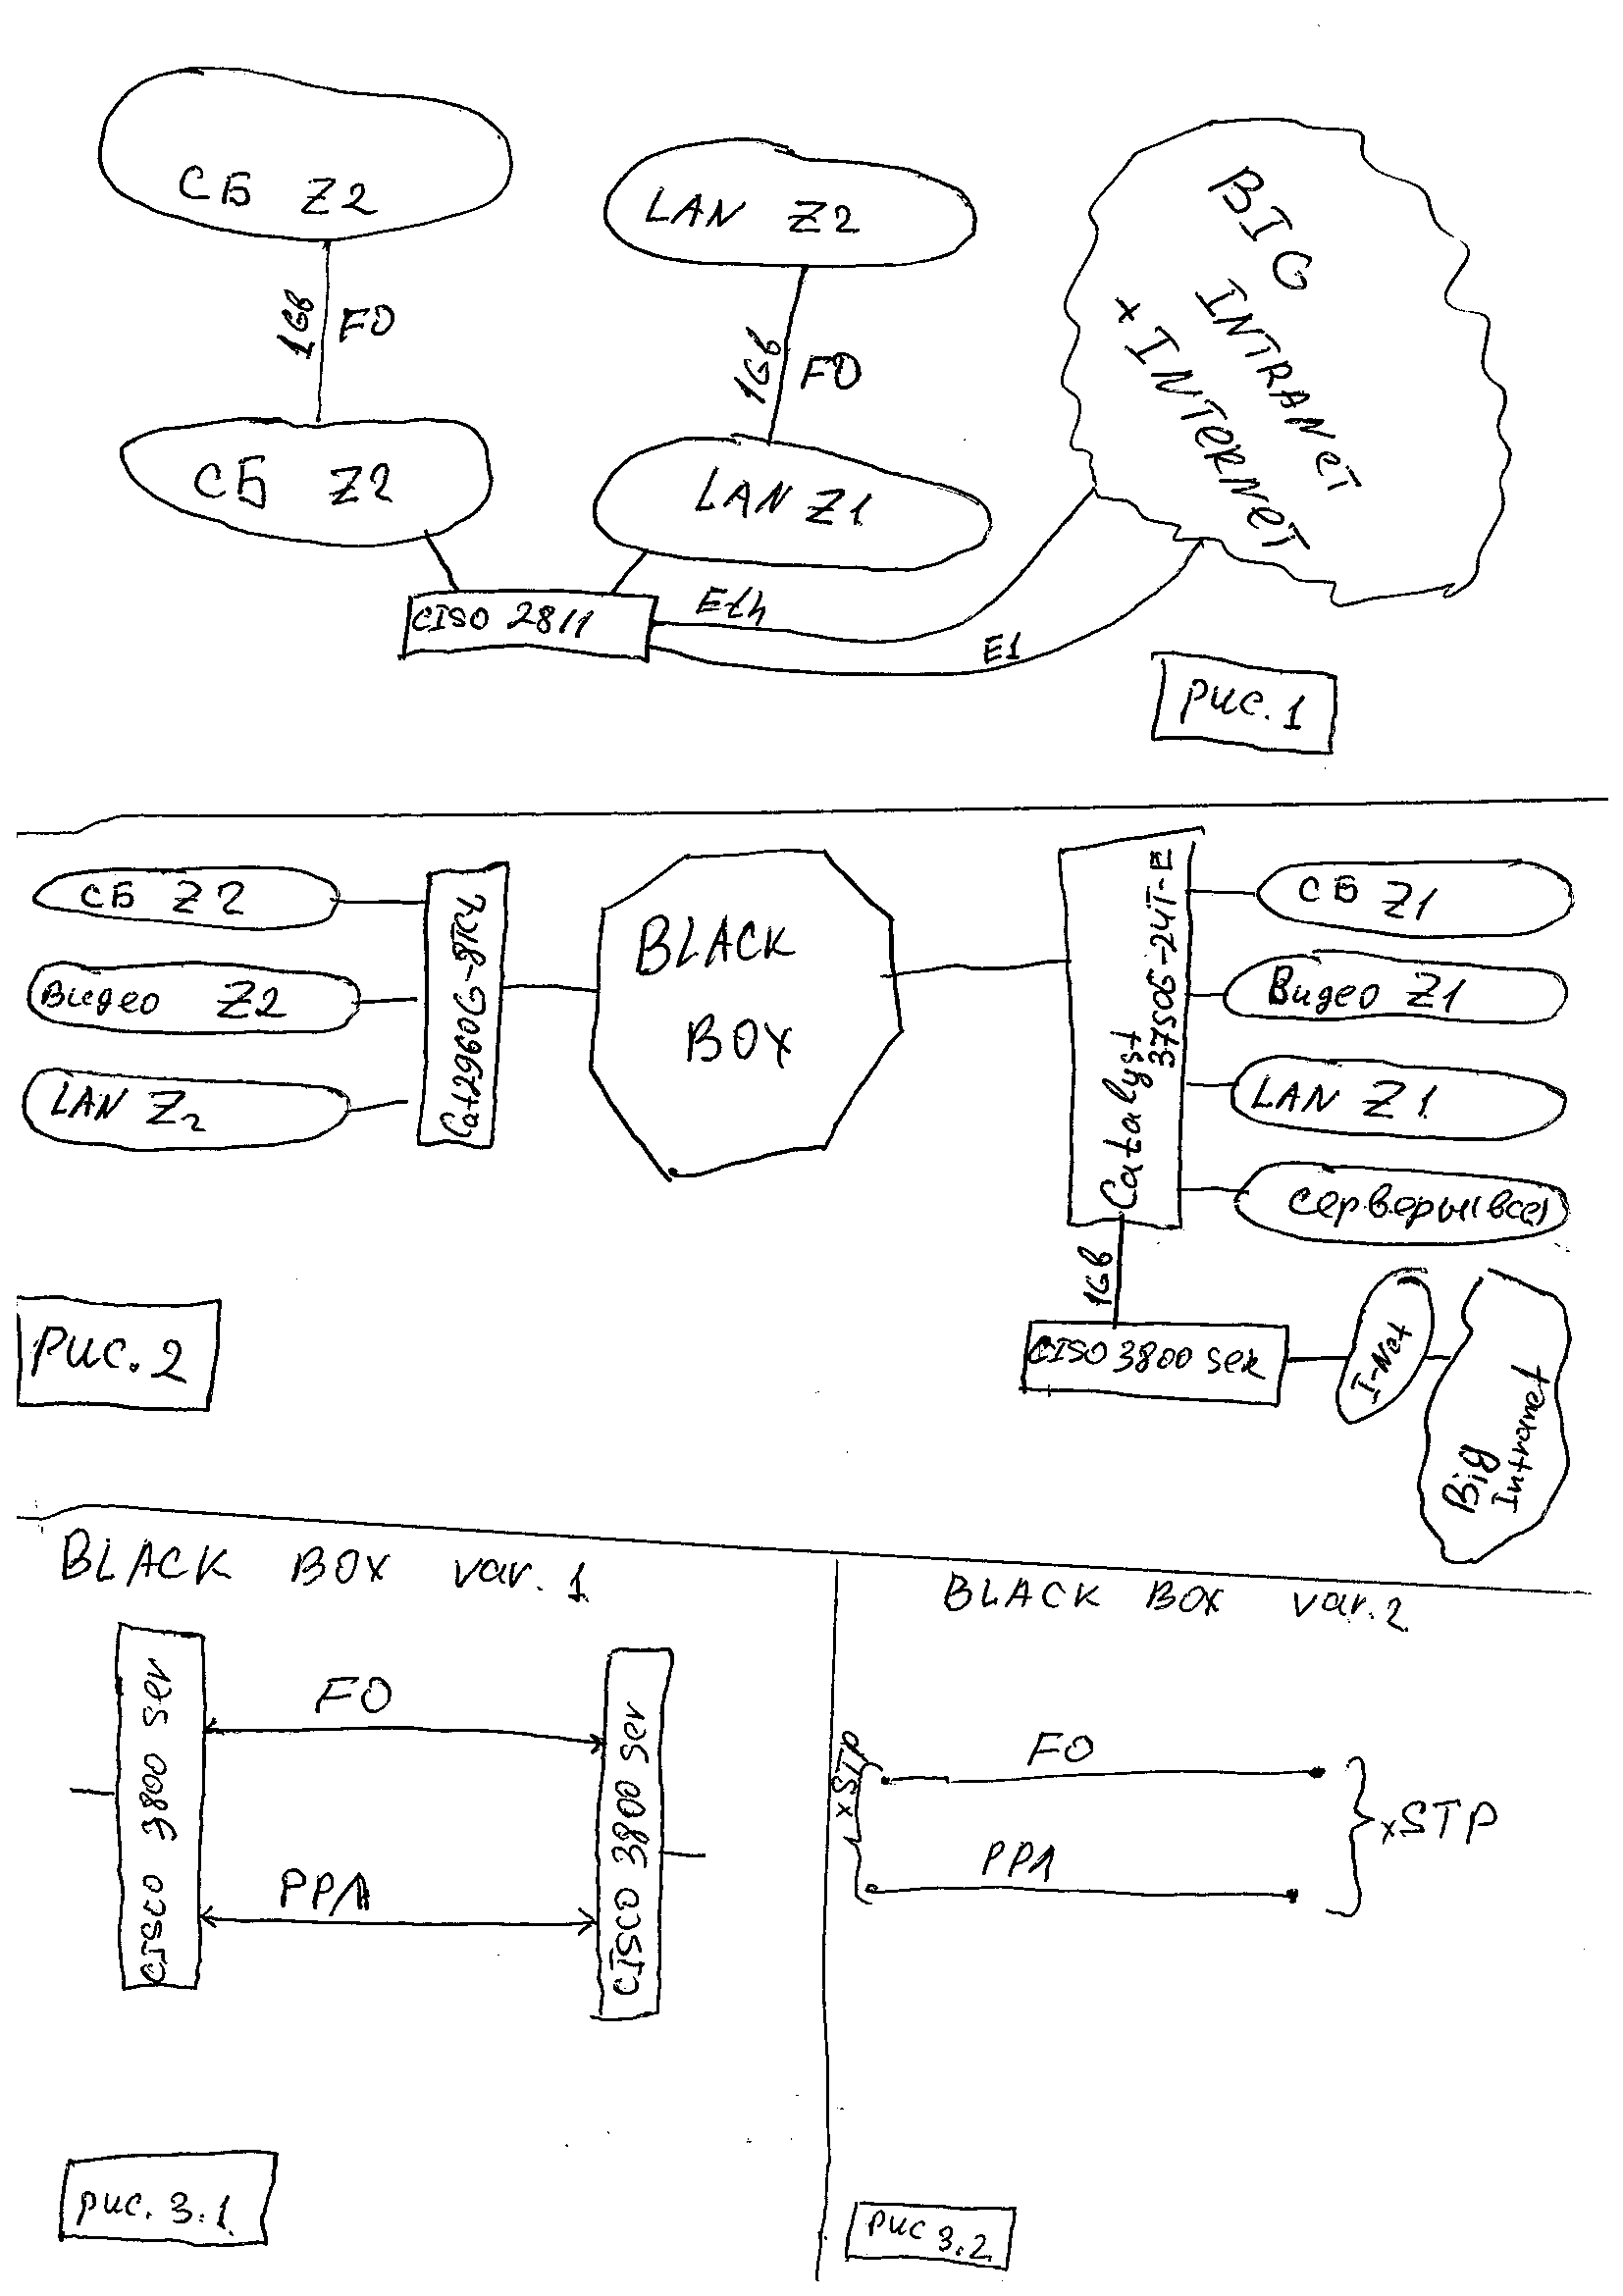 СБ Z2
LAN Z2
BIG
INTRANET
+ INTERNET
1Gb
FO
1Gb
FO
СБ Z2
LAN Z1
CISO 2811
Eth
E1
РИС. 1
СБ Z2
Видео Z2
LAN Z2
Cat2960G-8TCL
BLACK
BOX
Catalyst
3750G-24T-E
СБ Z1
Видео Z1
LAN Z1
Серверы(все)
1Gb
CISO 3800 ser
I-Net
Big
Intranet
РИС. 2
BLACK BOX var. 1
CISCO 3800 ser
FO
РРЛ
CISCO 3800 ser
рис. 3.1
BLACK BOX var. 2
xSTP
FO
РРЛ
xSTP
РИС 3.2